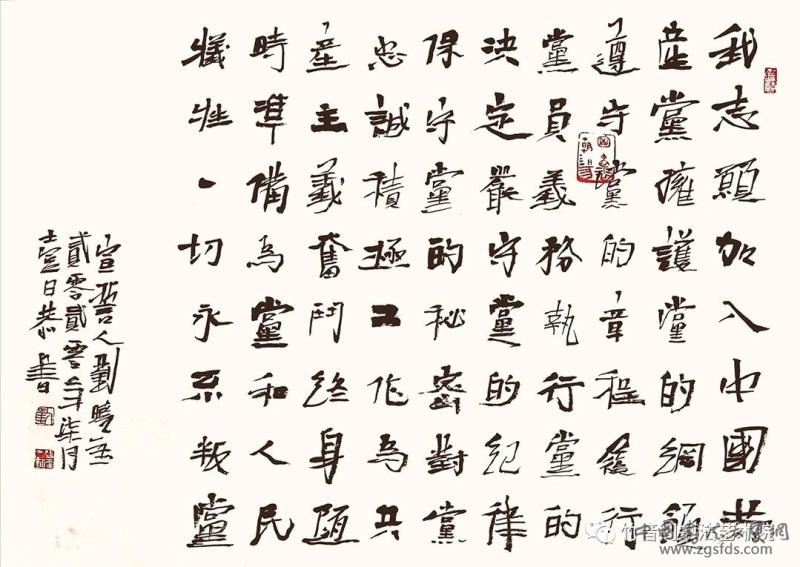 我志願加入中國共
産黨擁護黨的綱領
遵守黨的章程履行
黨員義務執行黨的
決定嚴守黨的紀律
保守黨的秘密對黨
忠誠積極工作為共
産主義奮鬥終身隨
時準備為黨和人民
犧牲一切永不叛黨
宣誓人劉
貳零貳零年柒月
壹日恭書
www.zgsfds.com